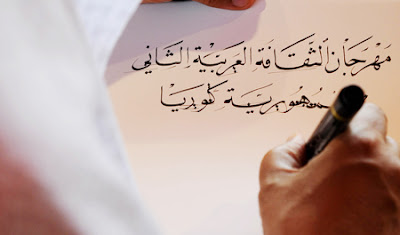 مهرجان الثقافة العربية الثاني
جمهورية كوريا